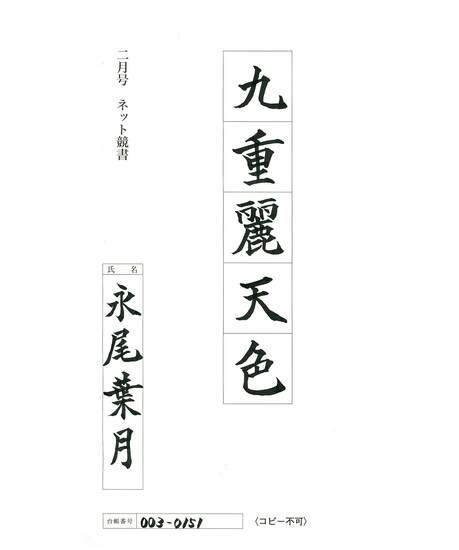 九重麗天色
二月号 ネット競書
氏名
永尾葉月
台帳番号 003-0151
〈コピー不可〉